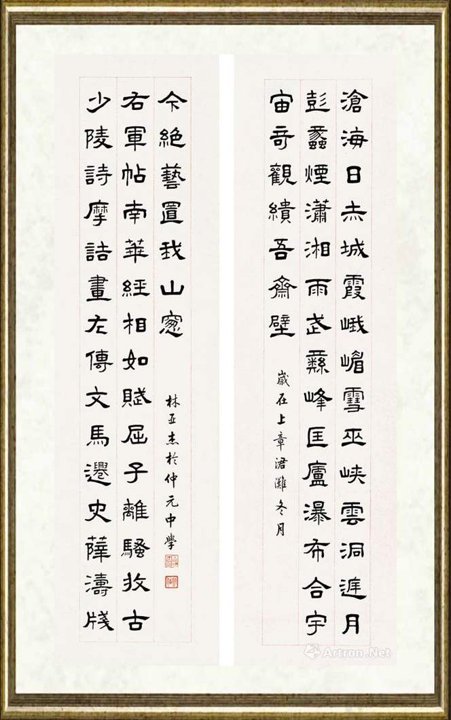 滄海日赤城霞峨嵋雪巫峽雲洞庭月
彭蠡煙瀟湘雨武彝峰匡廬瀑布合宇
宙奇觀繢吾齋壁
歲在上章涒灘冬月
少陵詩摩詰畫左傳文馬遷史薛濤牋
右軍帖南華經相如賦屈子離騷收古
今絕藝置我山窗
林亞杰於仲元中學
Artron.Net